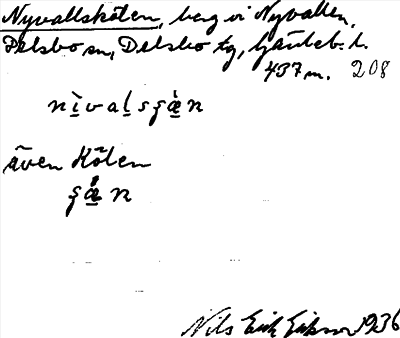 Nyvallskölen, berg vi Nyvallen,
Delsbo sn, Delsbo tg, Gävleb. l.
437 m. 208
även Kölen
Nils Erik Eriksson 1936